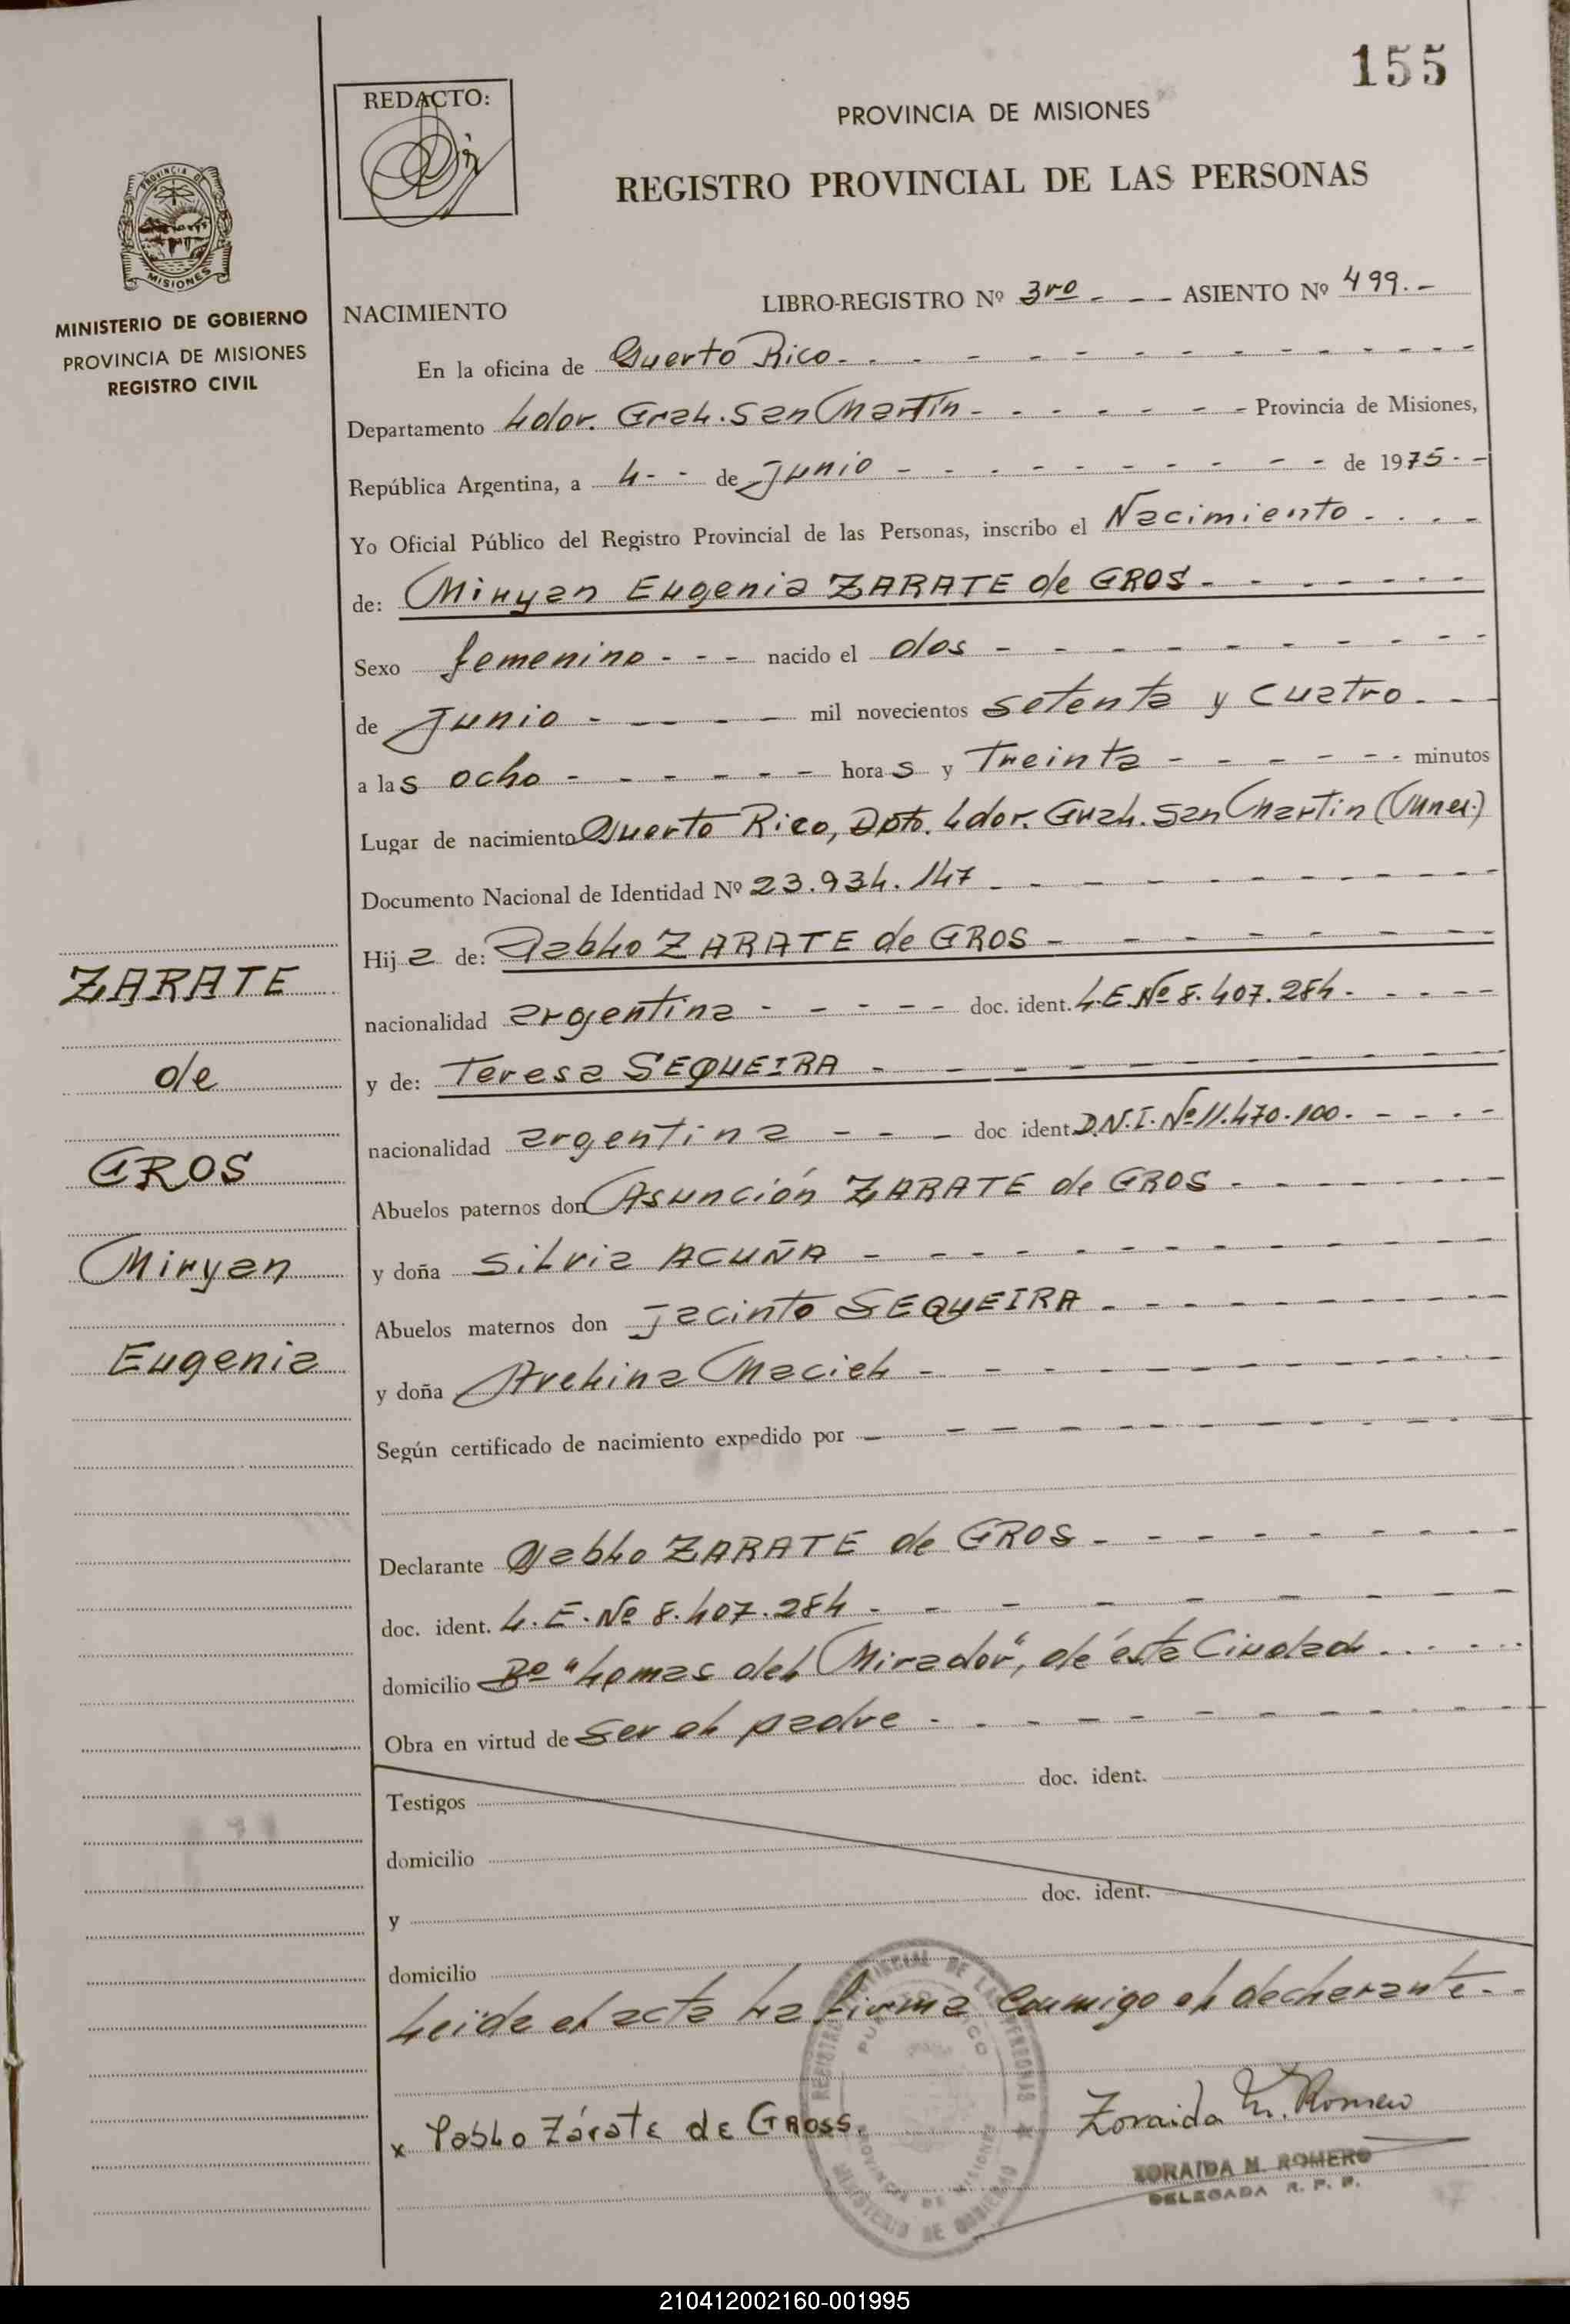 155
REDACTO:
PROVINCIA DE MISIONES
REGISTRO PROVINCIAL DE LAS PERSONAS
PROVINCIA DE
MISIONES
MINISTERIO DE GOBIERNO
PROVINCIA DE MISIONES
REGISTRO CIVIL
NACIMIENTO LIBRO-REGISTRO Nº 3ro - - - ASIENTO Nº 499.-
En la oficina de Puerto Rico
Departamento Ldor. Gral. San Martín - - - - - - Provincia de Misiones,
República Argentina, a 4 - - de Junio - - - - - - - - - de 1975 - -
Yo Oficial Público del Registro Provincial de las Personas, inscribo el Nacimiento
de: Miryan Eugenia ZARATE de GROS
Sexo femenino - - - nacido el dos
de Junio - - - - - mil novecientos setenta y cuatro
a las ocho - - - - - - horas y Treinta - - - - - - minutos
Lugar de nacimiento Puerto Rico, Dpto. Ldor. Gral. San Martin
Documento Nacional de Identidad Nº 23.934.147
Hija de: Pablo ZARATE de GROS
nacionalidad argentina - - - - - doc. ident. L.E.Nº 8.407.284
y de: Teresa SEQUEIRA
nacionalidad argentina - - - doc ident. D.N.I. Nº 11.470.100
Abuelos paternos don Asunción ZARATE de GROS
y doña Silvia ACUÑA
Abuelos maternos don Jacinto SEQUEIRA
y doña Avelina Maciel
Según certificado de nacimiento expedido por
Declarante Pablo ZARATE de GROS
doc. ident. L.E. Nº 8.407.284
domicilio Bº "Lomas del Mirador", de ésta Ciudad
Obra en virtud de ser el padre
Testigos doc. ident.
domicilio
y doc. ident.
domicilio
Leída el acta la firma conmigo el declarante.-
x Pablo Zárate de Gross.
Zoraida M. Romero
ZORAIDA M. ROMERO
DELEGADA R. P. P.
REGISTRO PROVINCIAL DE LAS PERSONAS
PROVINCIA DE MISIONES
MINISTERIO DE GOBIERNO
ZARATE
de
GROS
Miryan
Eugenia
210412002160-001995